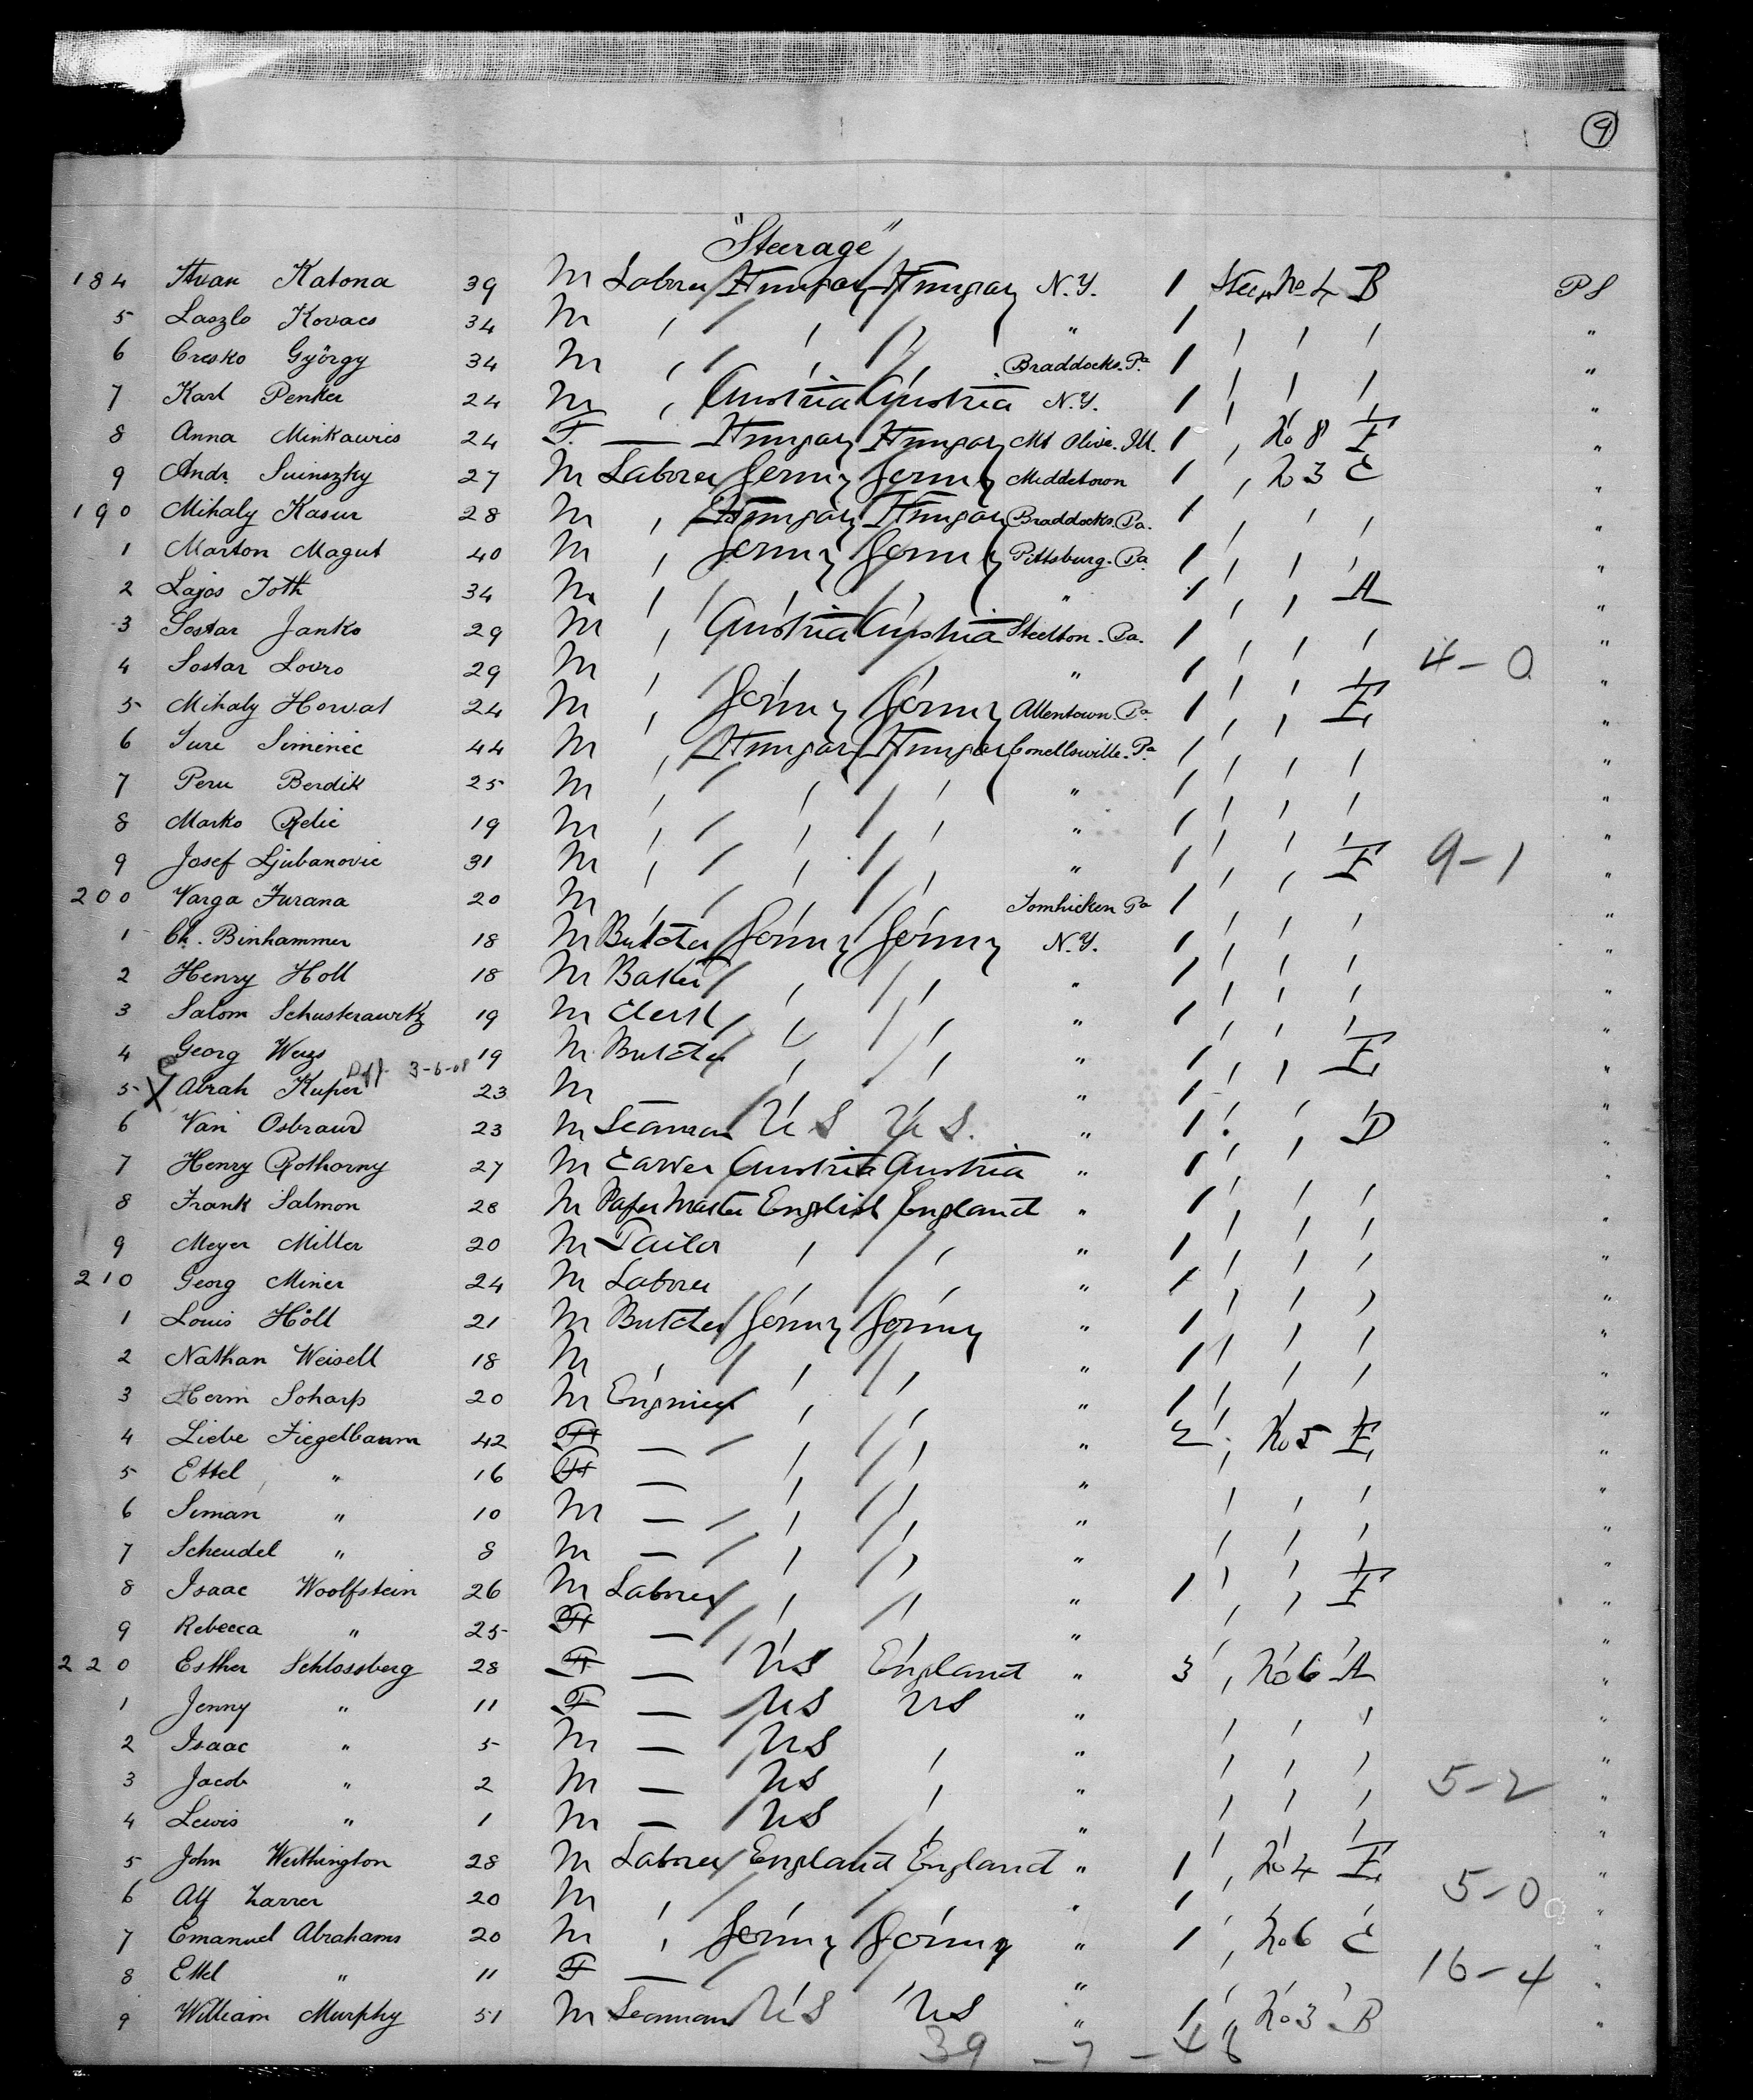 9
"Steerage"
184 Istvan Katona 39 M Laborer Hungary Hungary N.Y. 1 Steer. No 4 B PS
5 Laszlo Kovacs 34 M , / , / , " 1 , , , "
6 Cresko György 34 M , / , / , Braddocks. Pa. 1 , , , "
7 Karl Penker 24 M , Austria Austria N.Y. 1 , , , "
8 Anna Minkawics 24 F. — Hungary Hungary Mt Olive. Ill. 1 , No 8 F "
9 Andr. Suinszky 27 M Laborer Germy Germy Middletown 1 , No 3 E "
190 Mihaly Kasur 28 M , Hungary Hungary Braddocks. Pa. 1 , , , "
1 Marton Magut 40 M , Germy Germy Pittsburg. Pa. 1 , , , "
2 Lajos Toth 34 M , / , / , " 1 , , A "
3 Sostar Janko 29 M , Austria Austria Steelton. Pa. 1 , , , "
4 Sostar Lovro 29 M , / , / , " 1 , , , 4-0 "
5 Mihaly Horvat 24 M , Germy Germy Allentown. Pa. 1 , , F "
6 Jure Siminic 44 M , Hungary Hungary Conellsville. Pa. 1 , , , "
7 Peru Berdik 25 M , / , / , " 1 , , , "
8 Marko Relic 19 M , / , / , " 1 , , , "
9 Josef Ljubanovic 31 M , / , / , " 1 , , F 9-1 "
200 Varga Jurana 20 M , / , / , Tomhicken Pa 1 , , , "
1 Ch. Binhammer 18 M Butcher Germy Germy N.Y. 1 , , , "
2 Henry Holl 18 M Baker / , / , " 1 , , , "
3 Salom Schusterawitz 19 M Clerk / , / , " 1 , , , "
4 Georg Weys 19 M Butcher / , / , " 1 , , F "
3-6-08
5 X Abrah Kuper 23 M " 1 "
6 Van Osbraud 23 M Seaman U S U S. " 1 , , D "
7 Henry Rothorny 27 M Austria Austria " 1 , , , "
8 Frank Salmon 28 M Paper Master English England " 1 , , , "
9 Meyer Miller 20 M Tailor , / , " 1 , , , "
210 Georg Miner 24 M Laborer , / , " 1 , , , "
1 Louis Höll 21 M Butcher Germy Germy " 1 , , , "
2 Nathan Weisell 18 M , / , / , " 1 , , , "
3 Herm Scharp 20 M Engineer , / , " 1 , , , "
4 Liebe Ziegelbaum 42 F — / , / , " 2 , No 5 F "
5 Ettel " 16 F — , / , " , , , "
6 Siman " 10 M — / , / , " , , , "
7 Scheudel " 8 M — / , / , " , , , "
8 Isaac Woolfstein 26 M Laborer / , / , " 1 , , F "
9 Rebecca " 25 F — / , / , " , , , "
220 Esther Schlossberg 28 F — US England " 3 , No 6 A "
1 Jenny " 11 F — US US " , , , "
2 Isaac " 5 M — US , " , , , "
3 Jacob " 2 M — US , " , , , 5-2 "
4 Lewis " 1 M — US , " , , , "
5 John Werthington 28 M Laborer England England " 1 , No 4 F "
6 Alf Larrer 20 M , / , / , " 1 , , , 5-0 "
7 Emanuel Abrahams 20 M , Germy Germy " 1 , No 6 E "
8 Ettel " 11 F — / , / , " , , , 16-4 "
9 William Murphy 51 M Seaman US US " 1 , No 3 B "
39 - 7 - 46